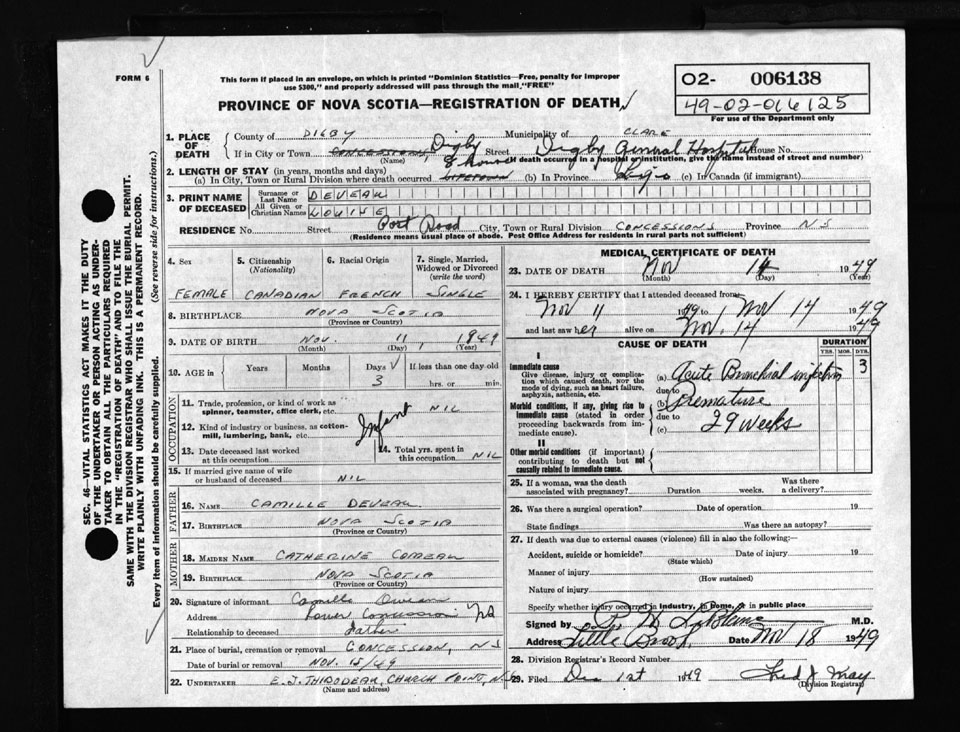 FORM 6
This form if placed in an envelope, on which is printed "Dominion Statistics—Free, penalty for improper
use $300," and properly addressed will pass through the mail "FREE"
PROVINCE OF NOVA SCOTIA—REGISTRATION OF DEATH
02- 006138
49-02-016125
For use of the Department only
SEC. 46—VITAL STATISTICS ACT MAKES IT THE DUTY
OF THE UNDERTAKER OR PERSON ACTING AS UNDER-
TAKER TO OBTAIN ALL THE PARTICULARS REQUIRED
IN THE "REGISTRATION OF DEATH" AND TO FILE THE
SAME WITH THE DIVISION REGISTRAR WHO SHALL ISSUE THE BURIAL PERMIT.
WRITE PLAINLY WITH UNFADING INK. THIS IS A PERMANENT RECORD.
Every item of Information should be carefully supplied. (See reverse side for instructions.)
1. PLACE OF DEATH
County of DIGBY Municipality of CLARE
If in City or Town CONCESSIONS Digby Street Digby General Hospital House No.
(Name) (If death occurred in a hospital or institution, give the name instead of street and number)
2. LENGTH OF STAY (in years, months and days)
(a) In City, Town or Rural Division where death occurred (b) In Province (c) In Canada (if immigrant)
3. PRINT NAME OF DECEASED
Surname or Last Name DEVEAU
All Given or Christian Names LOUISE
RESIDENCE No. Street Port Road City, Town or Rural Division CONCESSIONS Province NS
(Residence means usual place of abode. Post Office Address for residents in rural parts not sufficient)
4. Sex 5. Citizenship (Nationality) 6. Racial Origin 7. Single, Married, Widowed or Divorced (write the word)
FEMALE CANADIAN FRENCH SINGLE
8. BIRTHPLACE NOVA SCOTIA
(Province or Country)
9. DATE OF BIRTH NOV. 11 1949
(Month) (Day) (Year)
10. AGE in Years Months Days If less than one day old
3 hrs. or min.
OCCUPATION
11. Trade, profession, or kind of work as
spinner, teamster, office clerk, etc. NIL
12. Kind of industry or business, as cotton-
mill, lumbering, bank, etc. Infant
13. Date deceased last worked
at this occupation
14. Total yrs. spent in
this occupation NIL
15. If married give name of wife
or husband of deceased NIL
FATHER
16. NAME CAMILLE DEVEAU
17. BIRTHPLACE NOVA SCOTIA
(Province or Country)
MOTHER
18. MAIDEN NAME CATHERINE COMEAU
19. BIRTHPLACE NOVA SCOTIA
(Province or Country)
20. Signature of informant Camille
Address Lower Concession NS
Relationship to deceased Father
21. Place of burial, cremation or removal CONCESSION, NS
Date of burial or removal NOV. 15/49
22. UNDERTAKER E.J. THIBODEAU, CHURCH POINT, N.S.
(Name and address)
MEDICAL CERTIFICATE OF DEATH
23. DATE OF DEATH Nov 14 1949
(Month) (Day) (Year)
24. I HEREBY CERTIFY that I attended deceased from
Nov 11 1949 to Nov 14 1949
and last saw her alive on Nov. 14 1949
CAUSE OF DEATH DURATION
YRS. MOS. DYS.
I
Immediate cause
Give disease, injury or complica-
tion which caused death, NOT the
mode of dying, such as heart failure,
asphyxia, asthenia, etc.
(a) Acute Bronchial infection 3
due to
Morbid conditions, if any, giving rise to
immediate cause (stated in order
proceeding backwards from im-
mediate cause).
(b) Premature
due to
(c) 29 weeks
II
Other morbid conditions (if important)
contributing to death but not
causally related to immediate cause.
25. If a woman, was the death
associated with pregnancy? Duration weeks. Was there
a delivery?
26. Was there a surgical operation? Date of operation 19
State findings Was there an autopsy?
27. If death was due to external causes (violence) fill in also the following:—
Accident, suicide or homicide? Date of injury 19
(State which)
Manner of injury
(How sustained)
Nature of injury
Specify whether injury occurred in industry, in home, or in public place
Signed by LeBlanc M.D.
Address Little Brook. Date Nov 18 1949
28. Division Registrar's Record Number
29. Filed Dec 1st 1949 Fred J. May
(Division Registrar)